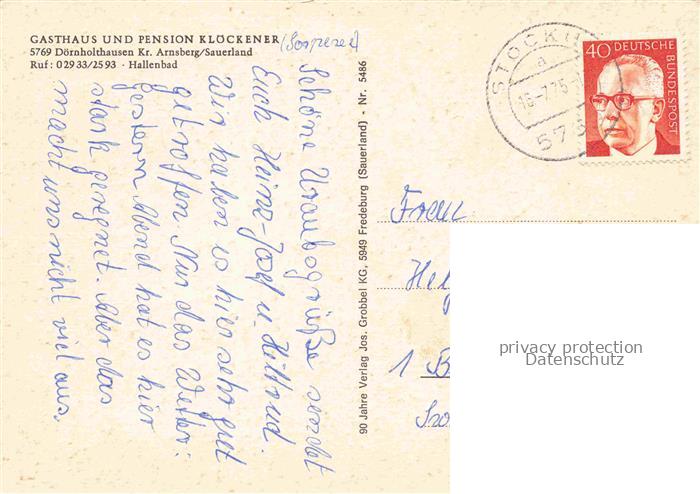 GASTHAUS UND PENSION KLÖCKENER
5769 Dörnholthausen Kr. Arnsberg/Sauerland
Ruf: 0 29 33/25 93 · Hallenbad
Schöne Uraubsgrüße sendet
Euch Heinz-Josef u. Hiltrud.
Wir haben es hier sehr gut
getroffen. Nur das Wetter:
gestern Abend hat es hier
stark geregnet. Aber das
macht uns nicht viel aus.
90 Jahre Verlag Jos. Grobbel KG, 5949 Fredeburg (Sauerland) - Nr. 5486
STOCKU
a
15.-7.75-
576
40 DEUTSCHE
BUNDESPOST
Frau
Hel
1 B
privacy protection
Datenschutz